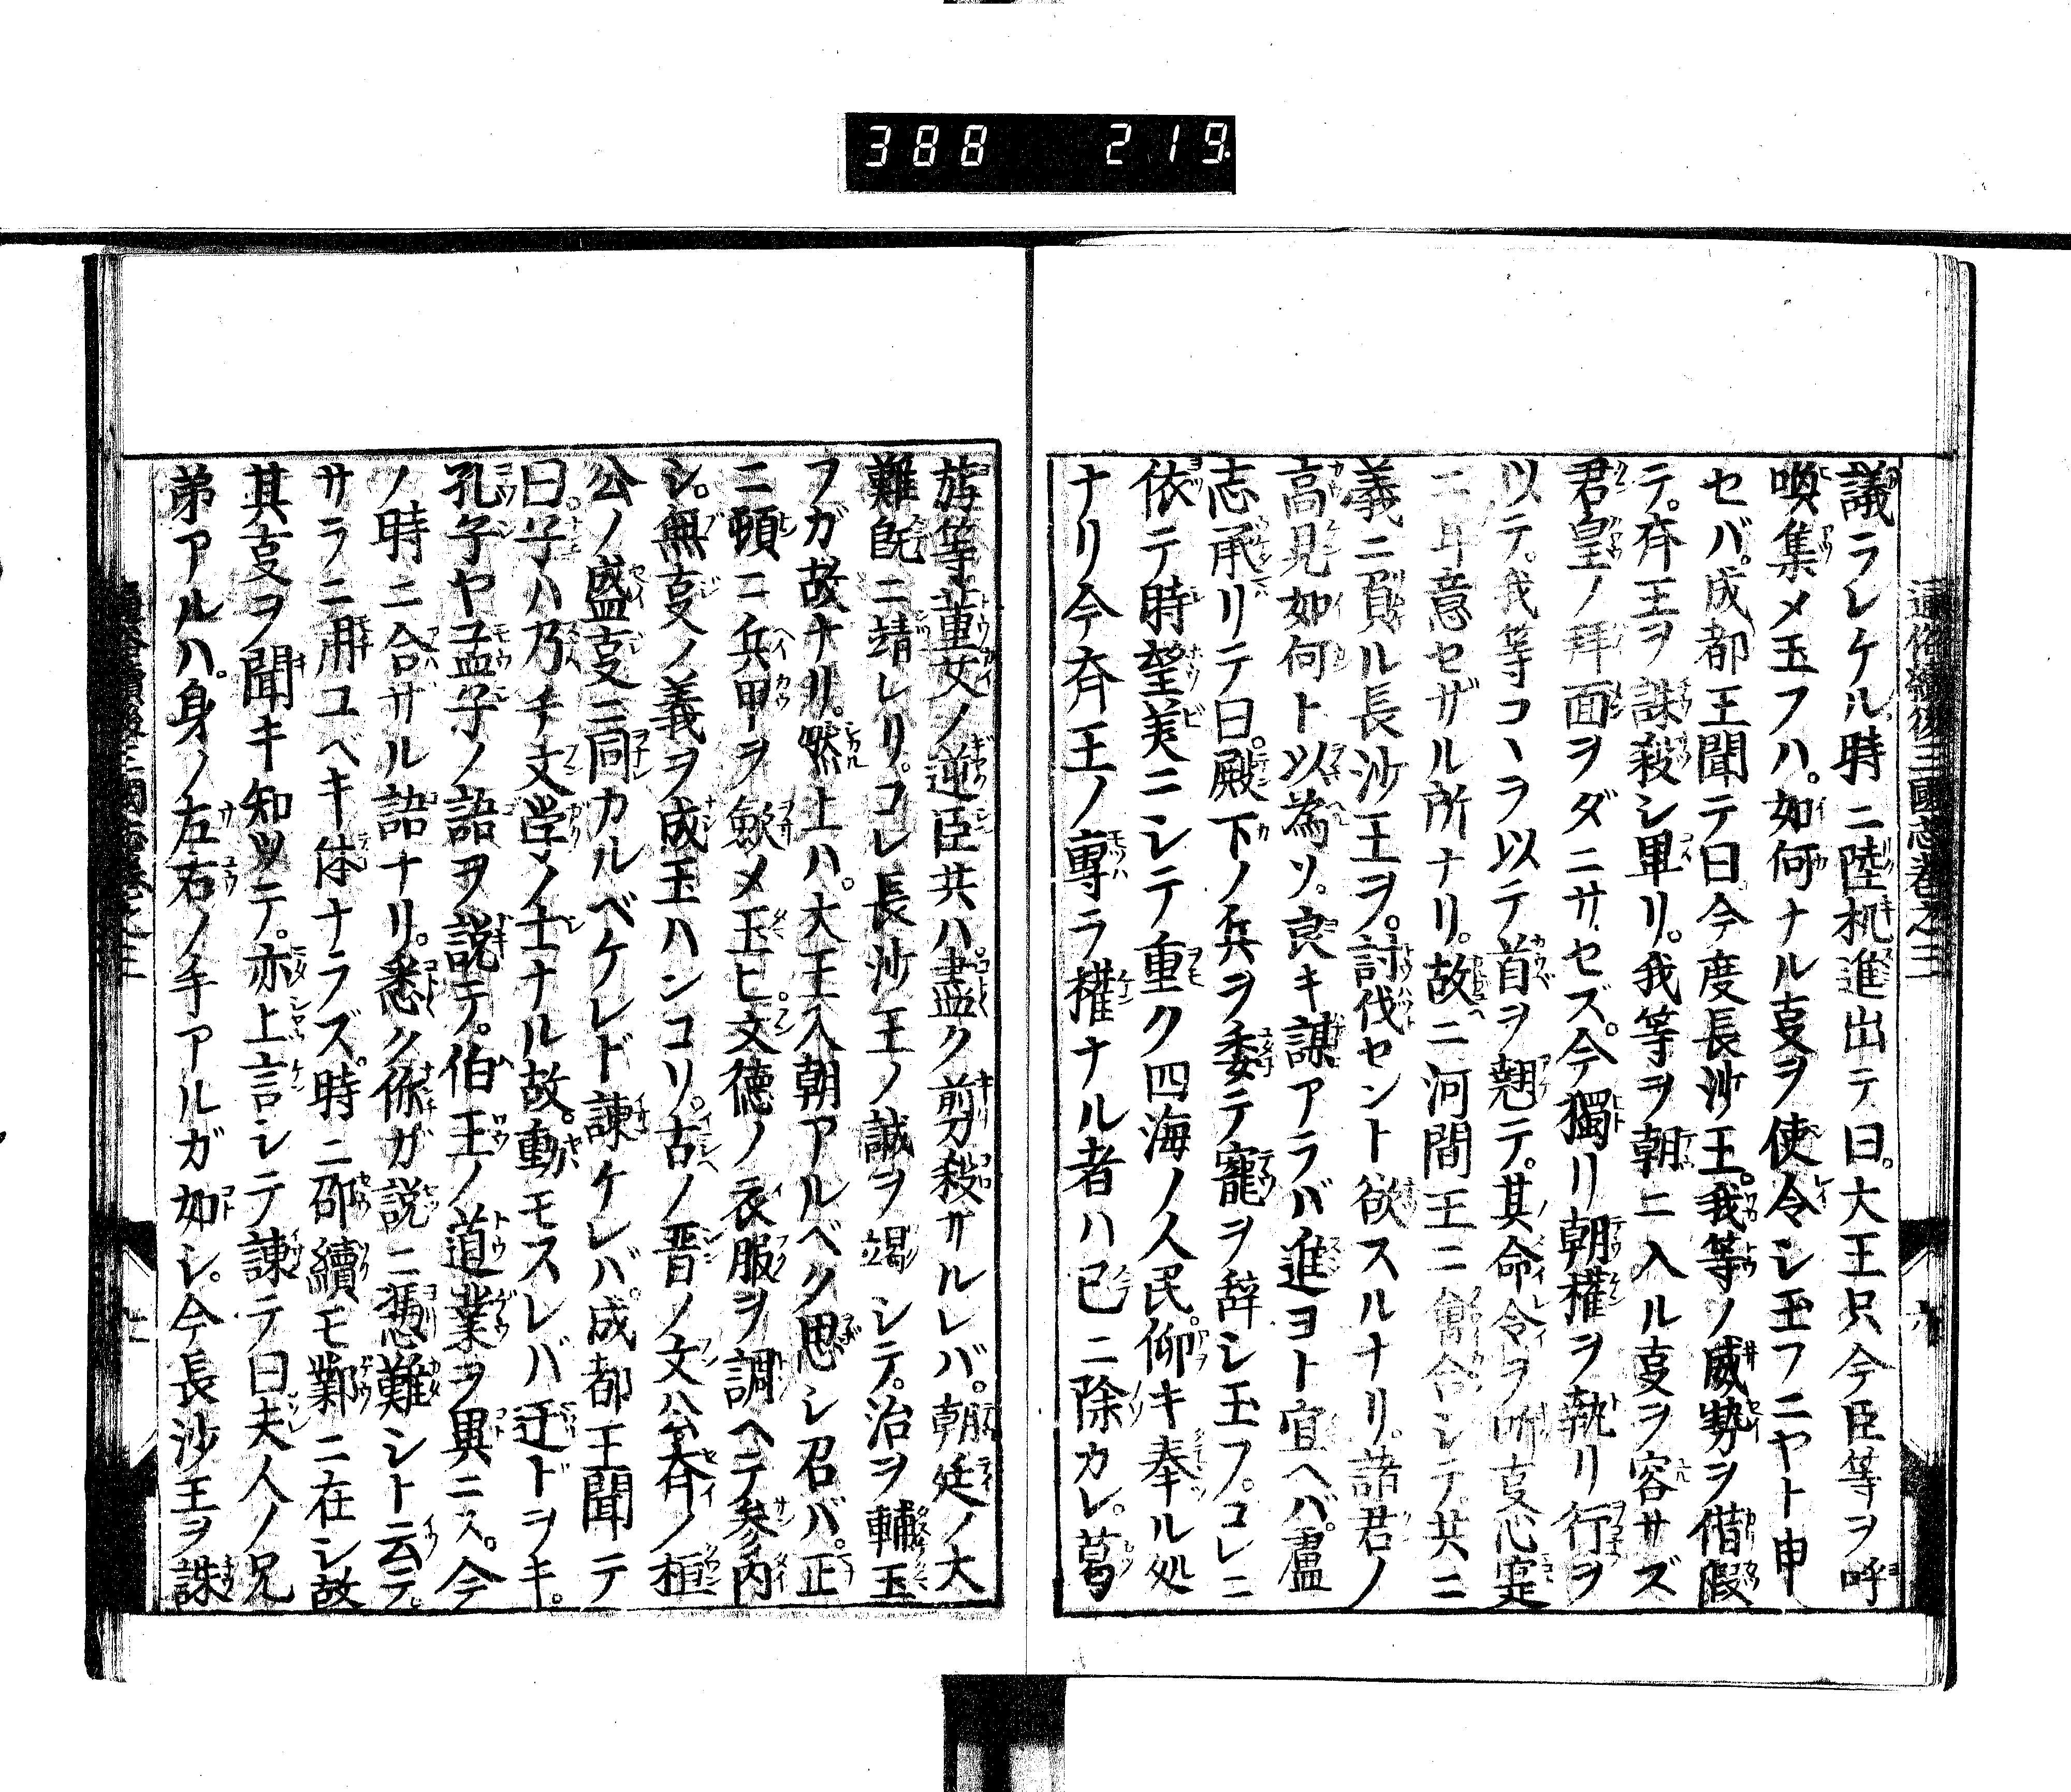 388 219
通俗續後三國志巻之三
議ラレケル時ニ陸機進出テ曰。大王只今臣等ヲ呼
喚集メ玉フハ。如何ナル事ヲ使令シ玉フニヤト申
セバ。成都王聞テ曰今度長沙王。我等ノ威勢ヲ借假
テ。斉王ヲ誅殺シ畢リ。我等ヲ朝ニ入ル事ヲ容サズ
君皇ノ拜面ヲダニサセズ。今獨リ朝權ヲ執リ行ヲ
ツテ。我等コヽラ以テ首ヲ翹テ。其命令ヲ聞事心寔
ニ甘意セザル所ナリ。故ニ河間王ニ會合シテ。共ニ
義ニ負ル長沙王ヲ。討伐セント欲スルナリ。諸君ノ
高見如何ト以為ソ。良キ謀アラバ進ヨト宣ヘバ。盧
志承リテ曰。殿下ノ兵ヲ委テ寵ヲ辞シ玉フ。コレニ
依テ時望美ニシテ重ク四海ノ人民。仰キ奉ル処
ナリ今斉王ノ專ラ權ナル者ハ已ニ除カレ。葛
旟等董艾ノ逆臣共ハ。盡ク剪殺サルレバ。朝廷ノ大
難既ニ靖レリ。コレ長沙王ノ誠ヲ竭シテ。治ヲ輔玉
フガ故ナリ。然上ハ。大王入朝アルベク思シ召バ。正
ニ頓ニ兵甲ヲ歛メ玉ヒ。文德ノ衣服ヲ調ヘテ參内
シ。無事ノ義ヲ成玉ハンコリ。古ノ晋ノ文公斉ノ桓
公ノ盛事ニ同カルベケレド諌ケレバ。成都王聞テ
曰。子ハ乃チ文学ノ士ナル故。動モスレバ迂ドヲキ。
孔子ヤ孟子ノ語ヲ説テ。伯王ノ道業ヲ異ニス。今
ノ時ニ合ザル語ナリ。悉ク你ガ説ニ憑難シト云テ。
サラニ用ユベキ体ナラズ。時ニ邵續モ鄴ニ在シ故
其事ヲ聞キ知ツテ。亦上言シテ諌テ曰夫人ノ兄
弟アルハ。身ノ左右ノ手アルガ如シ。今長沙王ヲ誅